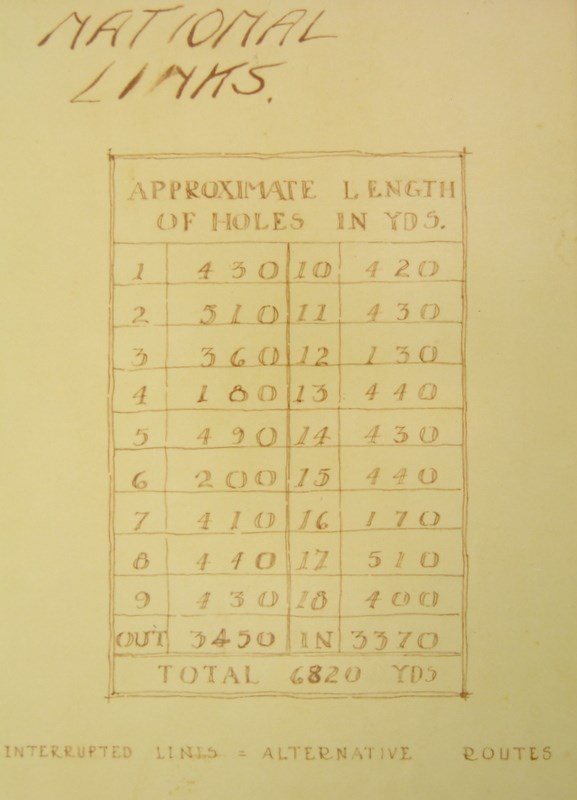 NATIONAL
LINKS.
APPROXIMATE LENGTH
OF HOLES IN YDS.
1 430 10 420
2 510 11 430
3 360 12 130
4 180 13 440
5 490 14 430
6 200 15 440
7 410 16 170
8 440 17 510
9 430 18 400
OUT 3450 IN 3370
TOTAL 6820 YDS
INTERRUPTED LINES = ALTERNATIVE ROUTES